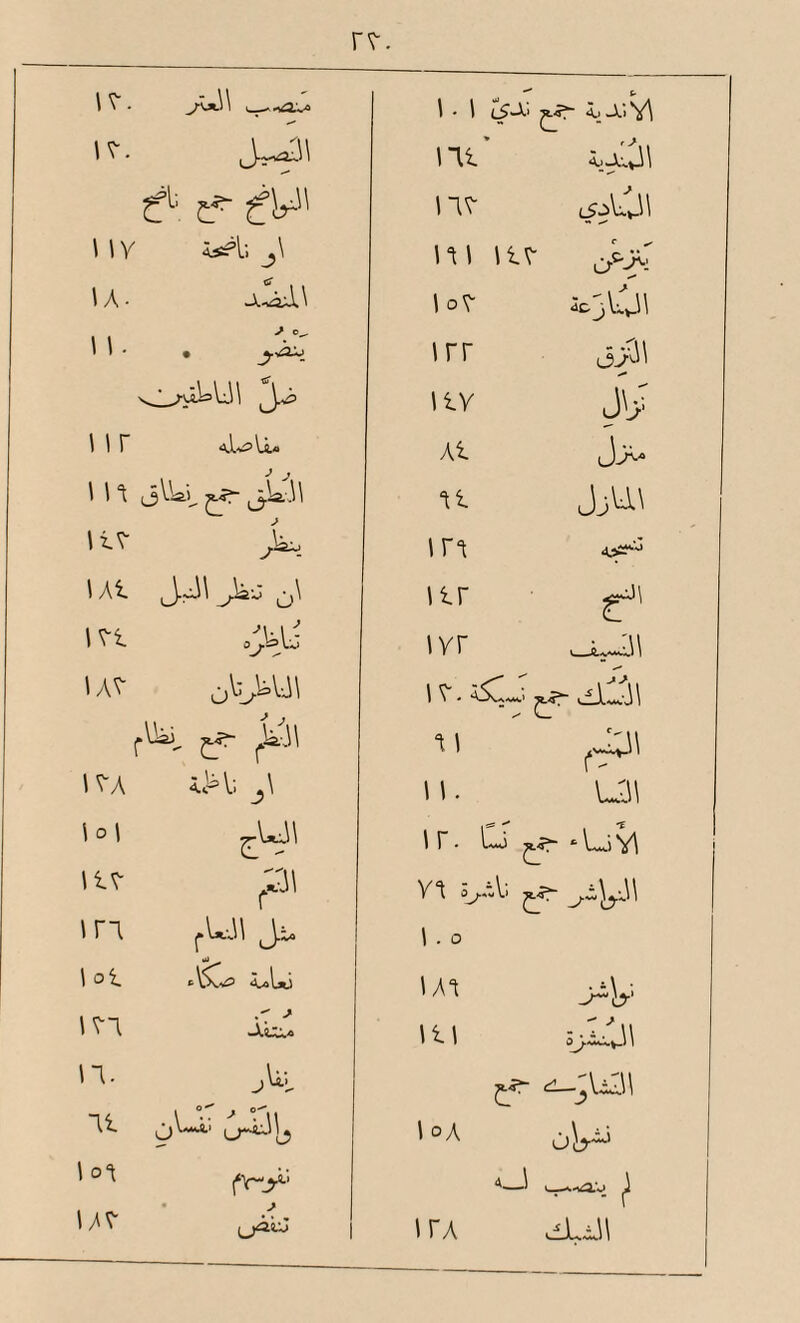 ٢٣٠
الأندية جمع نديّ ١٠١
المُندية ١٦٤
المُنادي ١٦٣
يَنزِعن ١٤٣ ١٩١
المُنازَعة ١٥٣
النَّزِق ١٢٢
نَزال ١٤٧
منزل ٨٤
المنازل ٩٤
تنسجه ١٢٩
النسج ١٤٢
النَّسِيف ١٧٢
النُّسُك جمع نَسِيكَة ١٣٠
المَنْسِم ٩١
النَّسا ١١٠
الأنساء جمع نَسًا ١٢٠
النواشر جمع ناشرة ٧٩
١٠٥
نواشز ١٨٩
المُنَشَّرة ١٤١
النَّشاوَى جمع
نشوان ١٥٨
لم ينصب له
الشبك ١٢٨
مَنصِب العتر ١٣٠
النَّصِيل ١٣٠
النواضح جمع ناضح
او ناضحة ١١٧
المنضَّد ١٨٠
يَنْضُو ١١٠
ضلّ الناطقين
مفاصله ١١٢
النُّطُق جمع نِطاق ١١٩
ينظُر ١٤٣
ان تنظر النبل ١٨٤
تُناظرُه ١٣٤
الناظرتان ١٨٣
النُّظُم جمع نِظام
او ناظمة ١٣٨
النِّعاج ١٥١
النَّعَم ١٤٣
مثل النعام ١٢٦
نعامة صكّاء ١٥٤
مُنتفَد ١٣٦
نِفار ١٦٠
والنَفْسُ نَفْسَان ٦٤
نفوسهم ١٥٩
تنفُض ١٨٣